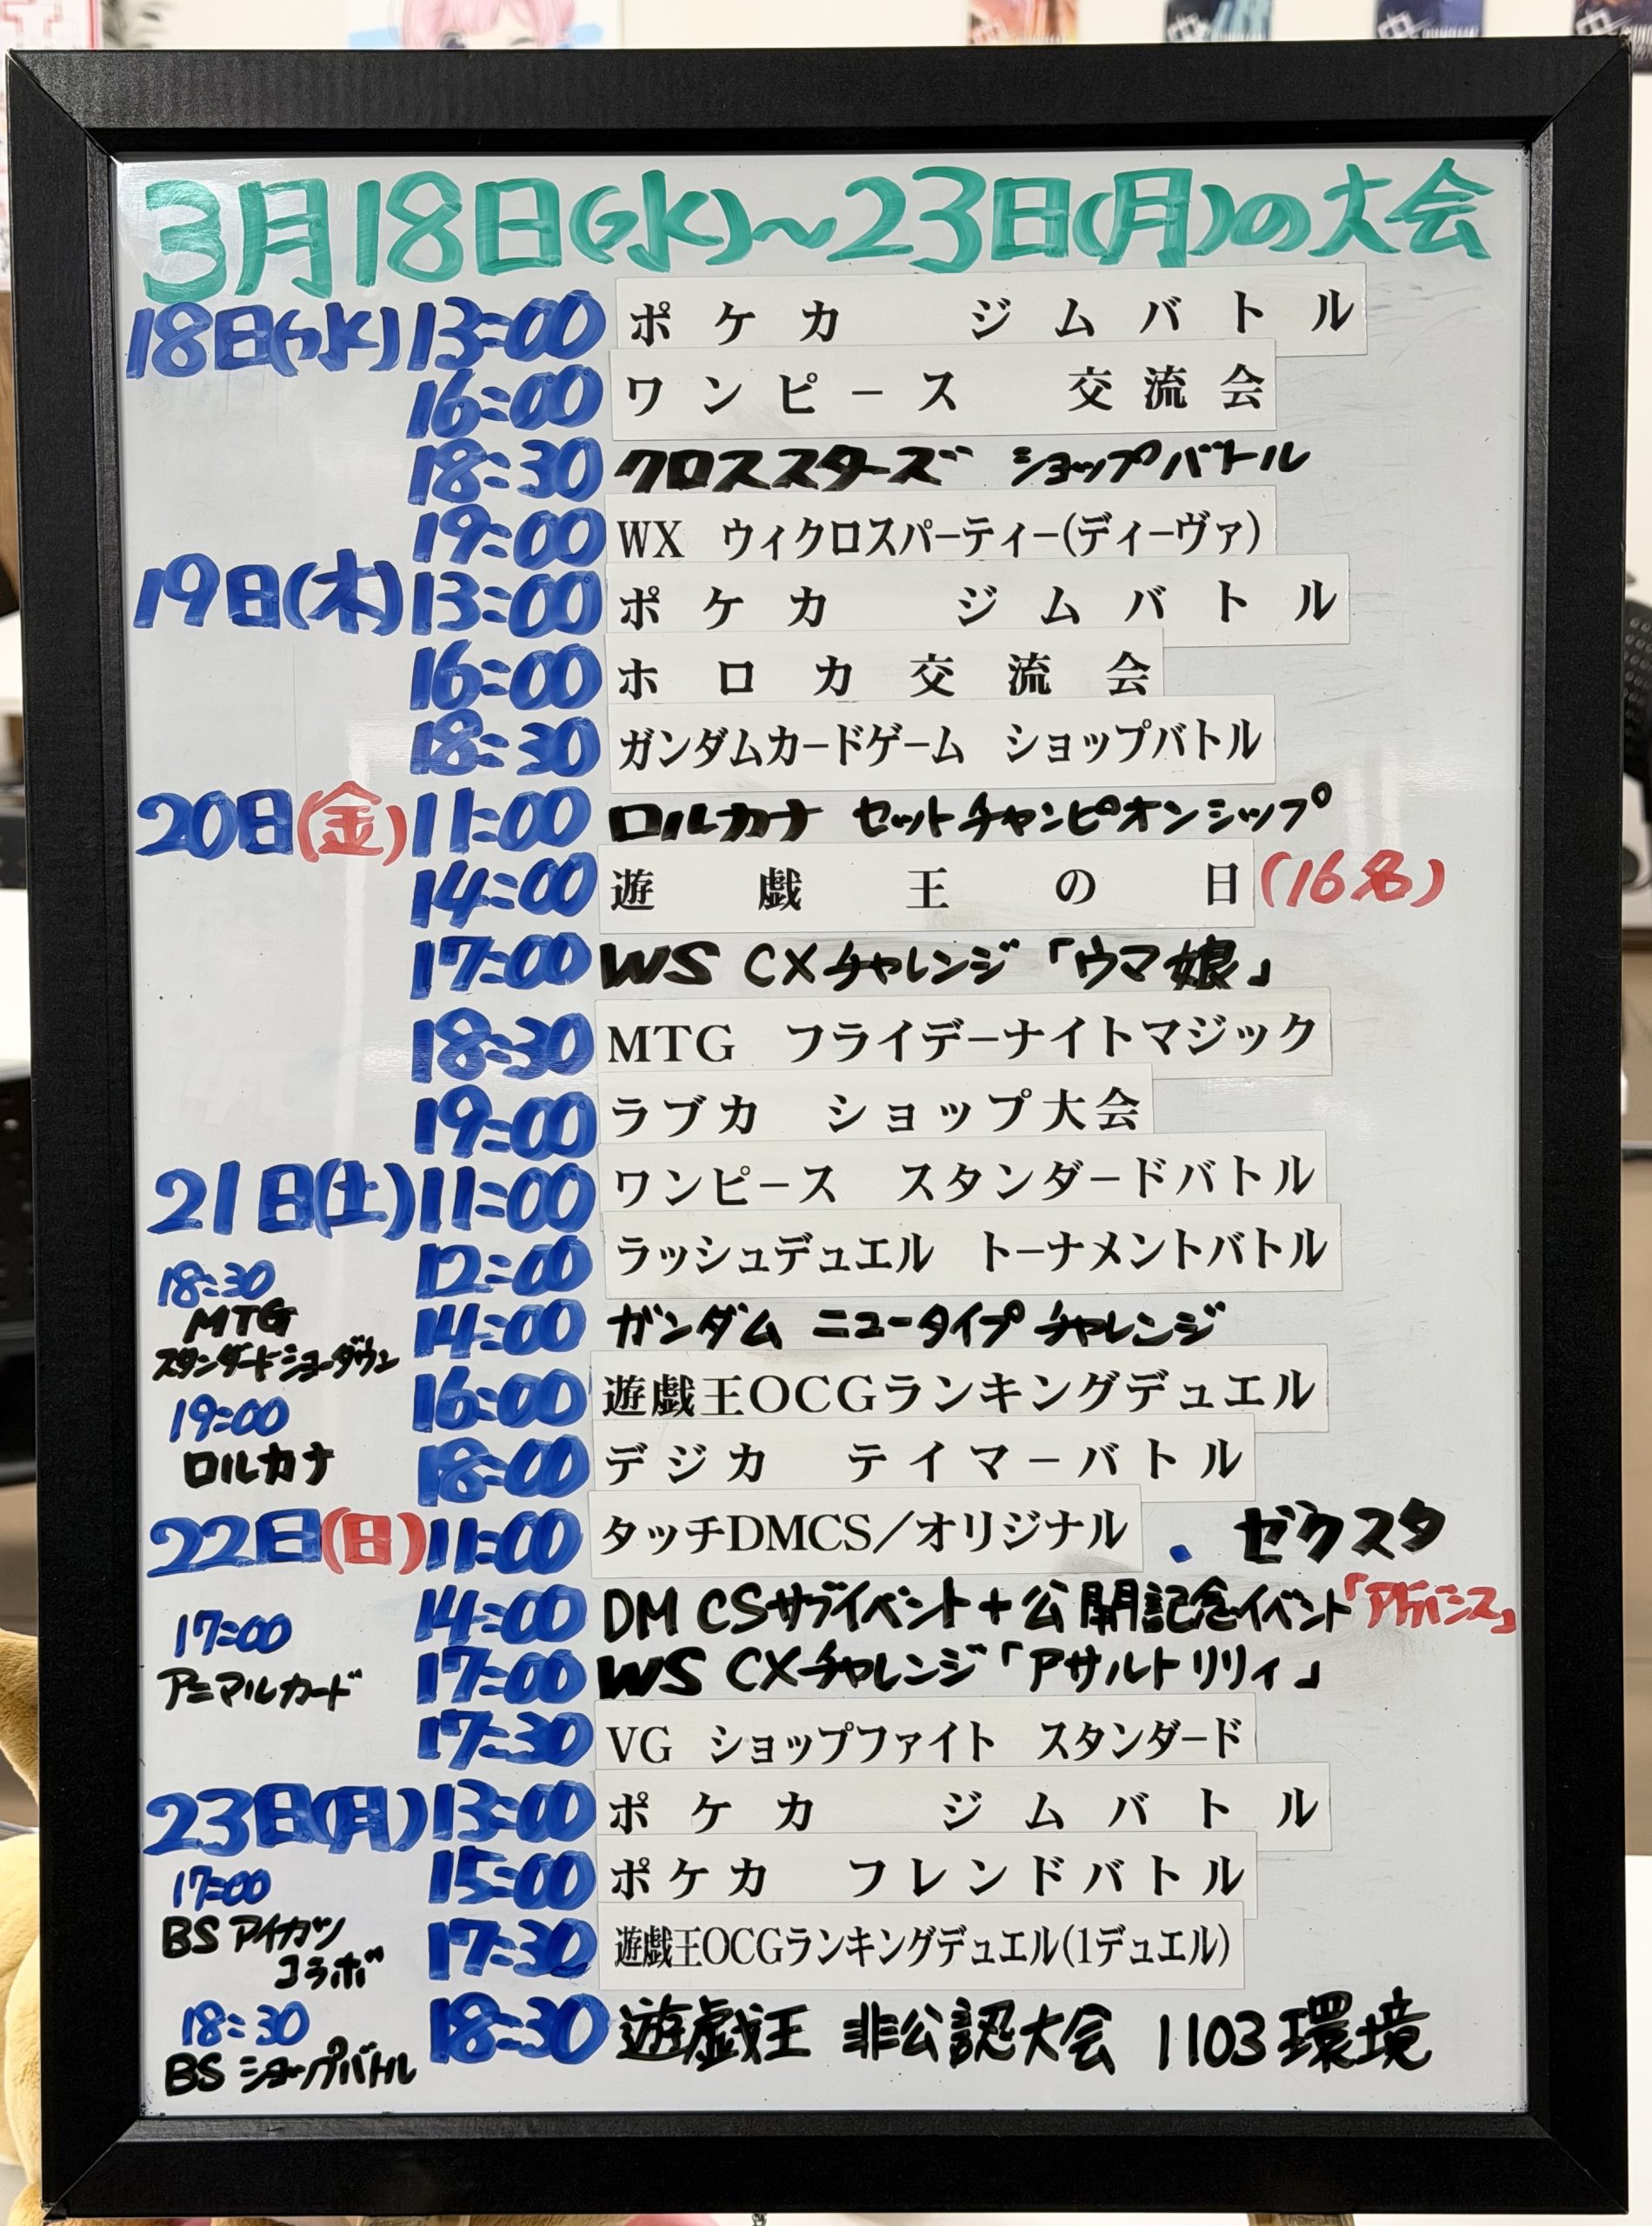 3月18日(水)～23日(月)の大会
18日(水) 13:00 ポケカ ジムバトル
16:00 ワンピース 交流会
18:30 クロススターズ ショップバトル
19:00 WX ウィクロスパーティー(ディーヴァ)
19日(木) 13:00 ポケカ ジムバトル
16:00 ホロカ交流会
18:30 ガンダムカードゲーム ショップバトル
20日(金) 11:00 ロルカナ セットチャンピオンシップ
14:00 遊戯王の日(16名)
17:00 WS CXチャレンジ「ウマ娘」
18:30 MTG フライデーナイトマジック
19:00 ラブカ ショップ大会
21日(土) 11:00 ワンピース スタンダードバトル
12:00 ラッシュデュエル トーナメントバトル
14:00 ガンダム ニュータイプ チャレンジ
16:00 遊戯王OCGランキングデュエル
18:00 デジカ テイマーバトル
18:30
MTG
スタンダードショーダウン
19:00
ロルカナ
22日(日) 11:00 タッチDMCS／オリジナル . ゼクスタ
14:00 DM CSサブイベント+公開記念イベント「アドバンス」
17:00 WS CXチャレンジ「アサルトリリィ」
17:30 VG ショップファイト スタンダード
17:00
アニマルカード
23日(月) 13:00 ポケカ ジムバトル
15:00 ポケカ フレンドバトル
17:30 遊戯王OCGランキングデュエル(1デュエル)
18:30 遊戯王 非公認大会 1103環境
17:00
BS アイカツ
コラボ
18:30
BS ショップバトル